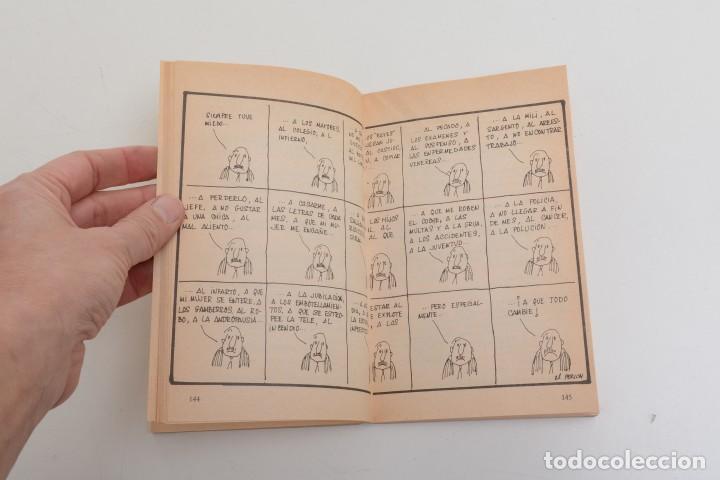 SIEMPRE TUVE
MIEDO...
... A LOS MAYORES,
AL COLEGIO, AL
INFIERNO,
LOS "REYES"
CASTIGO,
A COMAR
AL PECADO, A
LOS EXÁMENES Y
AL SUSPENSO, A
LAS ENFERMEDADES
VENEREAS...
... A LA MILI, AL
SARGENTO, AL ARRES-
TO, A NO ENCONTRAR
TRABAJO...
... A PERDERLO, AL
JEFE, A NO GUSTAR
A UNA CHICA, AL
MAL ALIENTO...
... A CASARME, A
LAS LETRAS DE CADA
MES, A QUE MI MU-
JER ME ENGAÑE...
LOS HIJOS
AL
AL QUE
... A QUE ME ROBEN
EL COCHE, A LAS
MULTAS Y A LA GRUA,
A LOS ACCIDENTES,
A LA JUVENTUD...
... A LA POLICIA,
A NO LLEGAR A FIN
DE MES, AL CANCER,
A LA POLUCIÓN...
... AL INFARTO, A QUE
MI MUJER SE ENTERE, A
LOS GAMBERROS, AL RO-
BO, A LA ANDROPAUSIA...
... A LA JUBILACIÓN,
A LOS EMBOTELLAMIEN-
TOS, A QUE SE ESTRO-
PEE LA TELE, AL
INCENDIO...
ESTAR AL
EXPLOTE
A LAS
... PERO ESPECIAL-
MENTE...
... ¡A QUE TODO
CAMBIE!
EL PERICH
144
145
todocoleccion.net